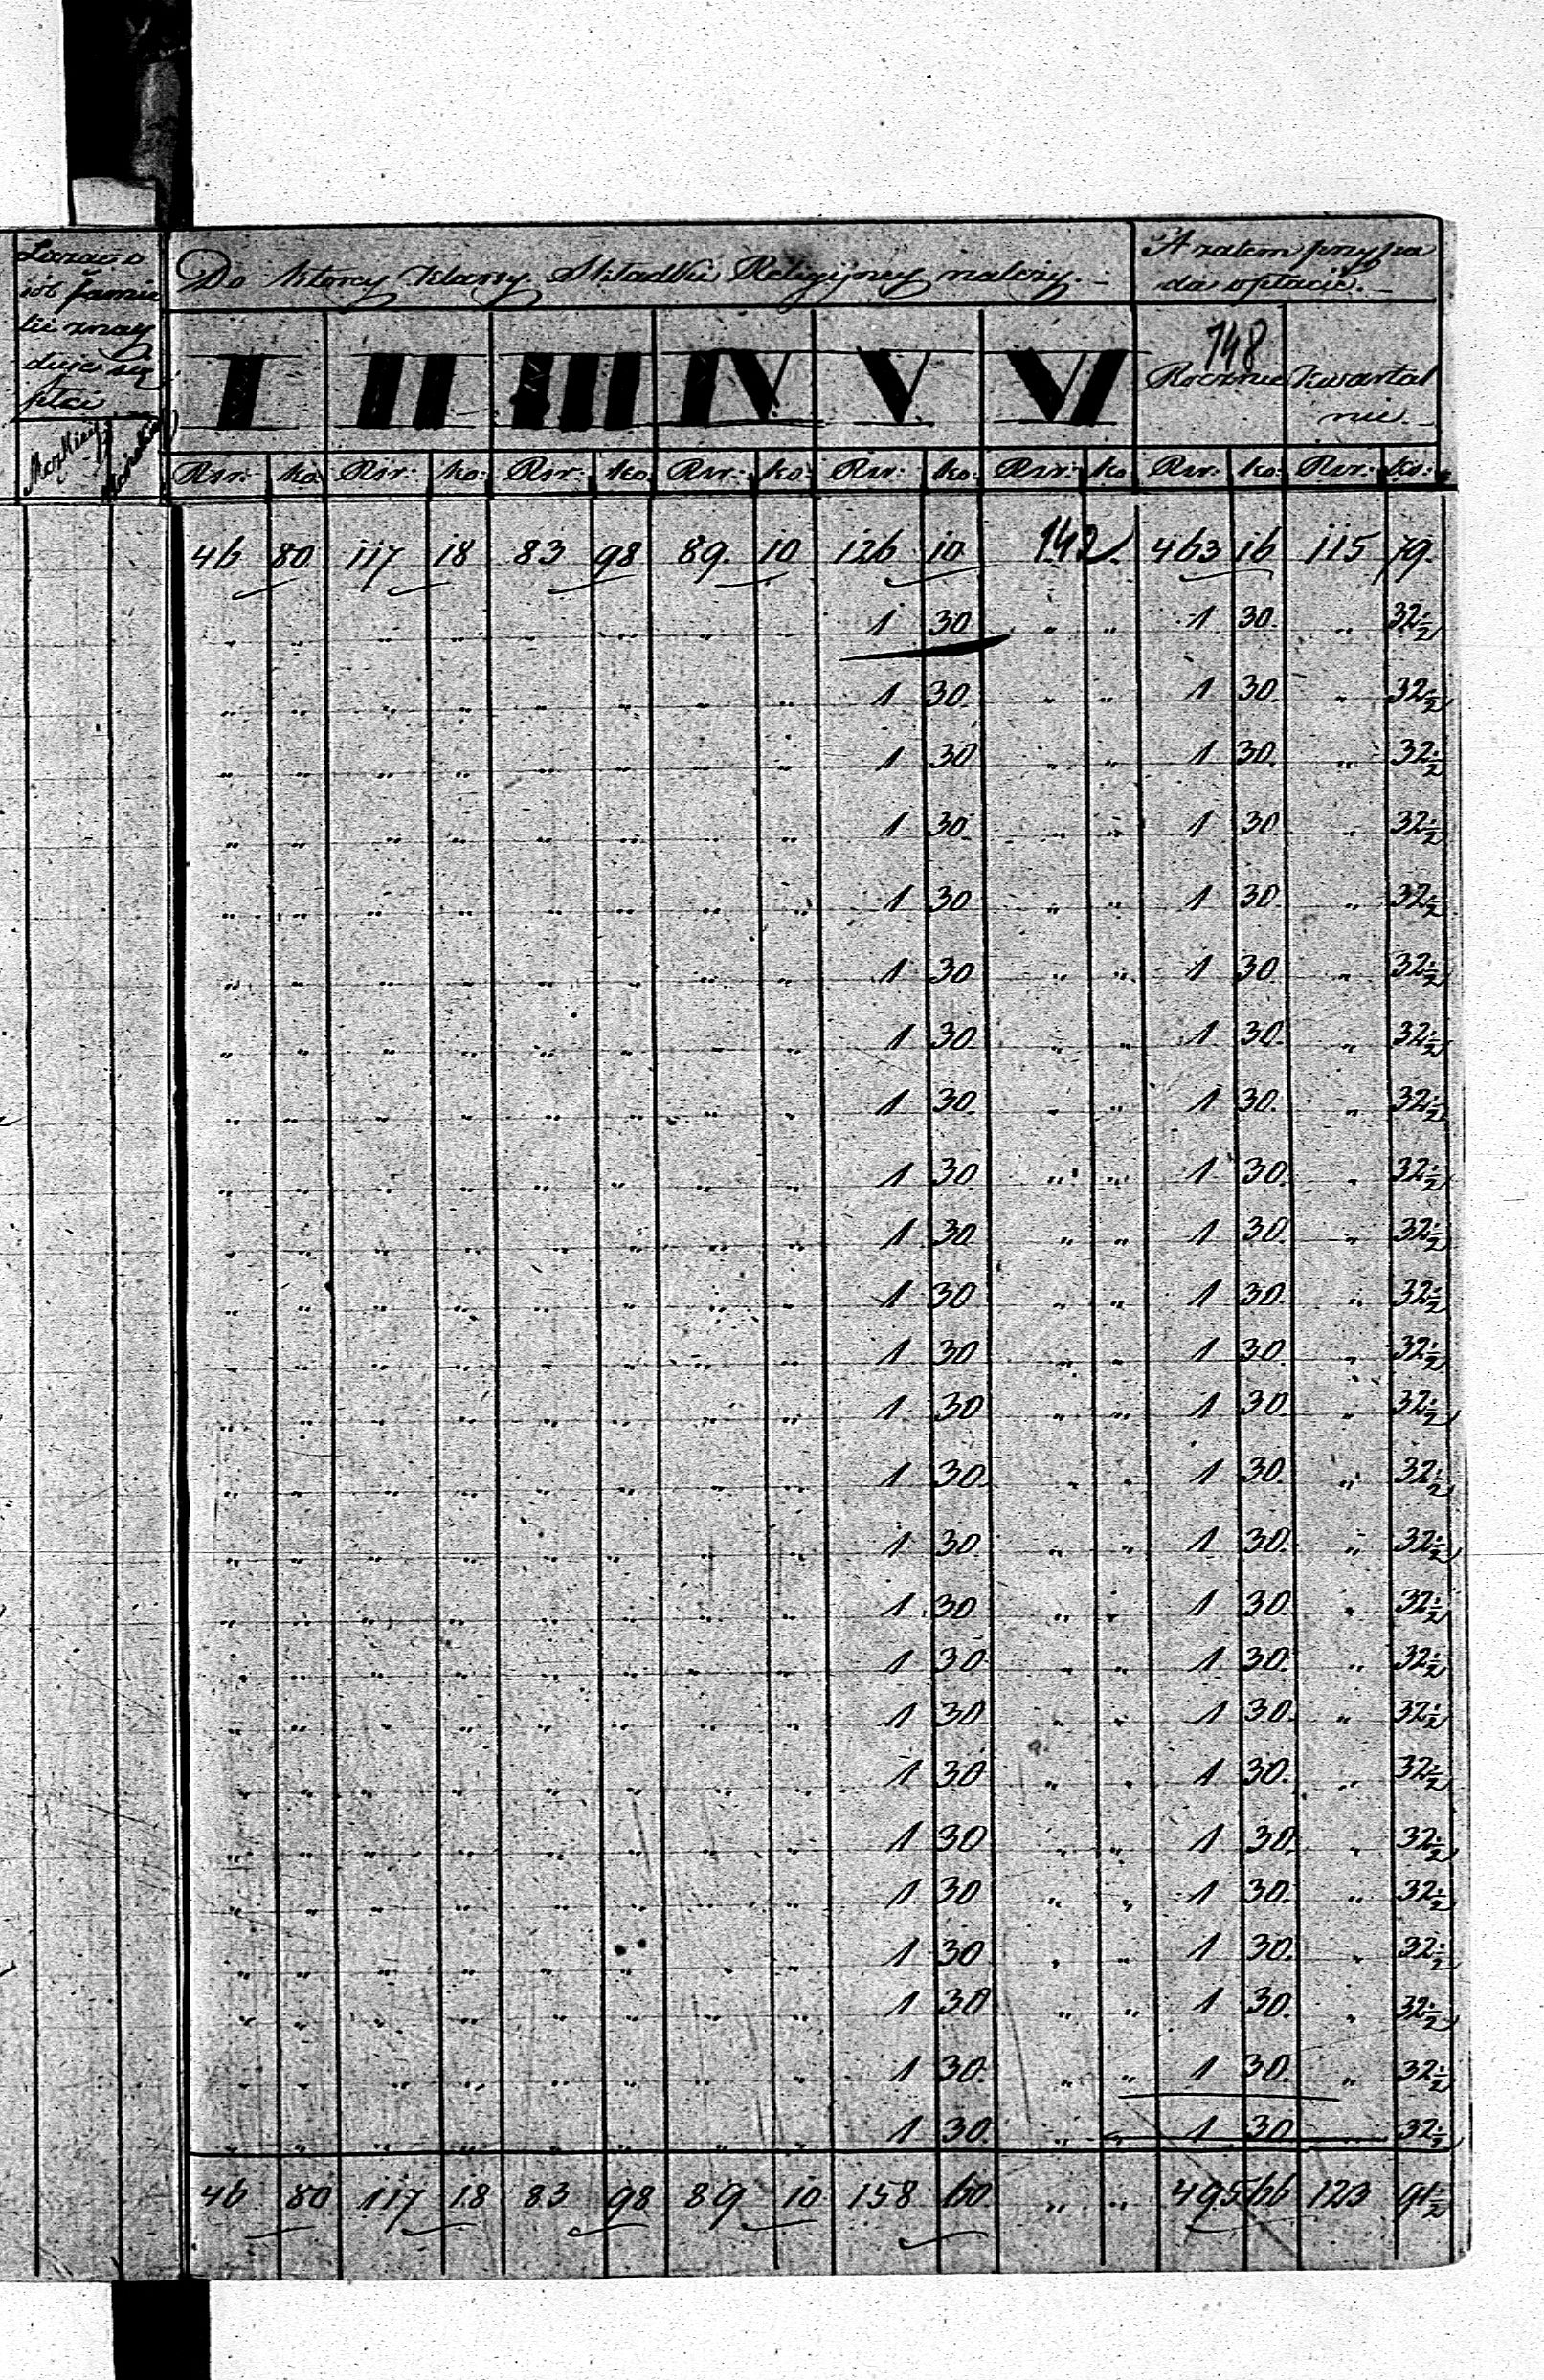 Liczba o
sób Fami
lii znay
duje się
płci
Męzkiéy
Do którey Klassy Składki Religijney należy.
A zatem przypa
da opłacić.
I II III IV V VI 148
Rocznie Kwartal
nie
Rsr: ko: Rsr: ko: Rsr: ko: Rsr: ko: Rsr: ko: Rsr: ko: Rsr: ko: Rsr: ko:
46 80 117 18 83 98 89 10 126 10 142 463 16 115 79
„ „ „ „ „ „ „ „ 1 30 „ „ 1 30 „ 32½
„ „ „ „ „ „ „ „ 1 30 „ „ 1 30 „ 32½
„ „ „ „ „ „ „ „ 1 30 „ „ 1 30 „ 32½
„ „ „ „ „ „ „ „ 1 30 „ „ 1 30 „ 32½
„ „ „ „ „ „ „ „ 1 30 „ „ 1 30 „ 32½
„ „ „ „ „ „ „ „ 1 30 „ „ 1 30 „ 32½
„ „ „ „ „ „ „ „ 1 30 „ „ 1 30 „ 32½
„ „ „ „ „ „ „ „ 1 30 „ „ 1 30 „ 32½
„ „ „ „ „ „ „ „ 1 30 „ „ 1 30 „ 32½
„ „ „ „ „ „ „ „ 1 30 „ „ 1 30 „ 32½
„ „ „ „ „ „ „ „ 1 30 „ „ 1 30 „ 32½
„ „ „ „ „ „ „ „ 1 30 „ „ 1 30 „ 32½
„ „ „ „ „ „ „ „ 1 30 „ „ 1 30 „ 32½
„ „ „ „ „ „ „ „ 1 30 „ „ 1 30 „ 32½
„ „ „ „ „ „ „ „ 1 30 „ „ 1 30 „ 32½
„ „ „ „ „ „ „ „ 1 30 „ „ 1 30 „ 32½
„ „ „ „ „ „ „ „ 1 30 „ „ 1 30 „ 32½
„ „ „ „ „ „ „ „ 1 30 „ „ 1 30 „ 32½
„ „ „ „ „ „ „ „ 1 30 „ „ 1 30 „ 32½
„ „ „ „ „ „ „ „ 1 30 „ „ 1 30 „ 32½
„ „ „ „ „ „ „ „ 1 30 „ „ 1 30 „ 32½
„ „ „ „ „ „ „ „ 1 30 „ „ 1 30 „ 32½
„ „ „ „ „ „ „ „ 1 30 „ „ 1 30 „ 32½
„ „ „ „ „ „ „ „ 1 30 „ „ 1 30 „ 32½
„ „ „ „ „ „ „ „ 1 30 „ „ 1 30 „ 32½
46 80 117 18 83 98 89 10 158 60 „ „ 495 66 123 91½